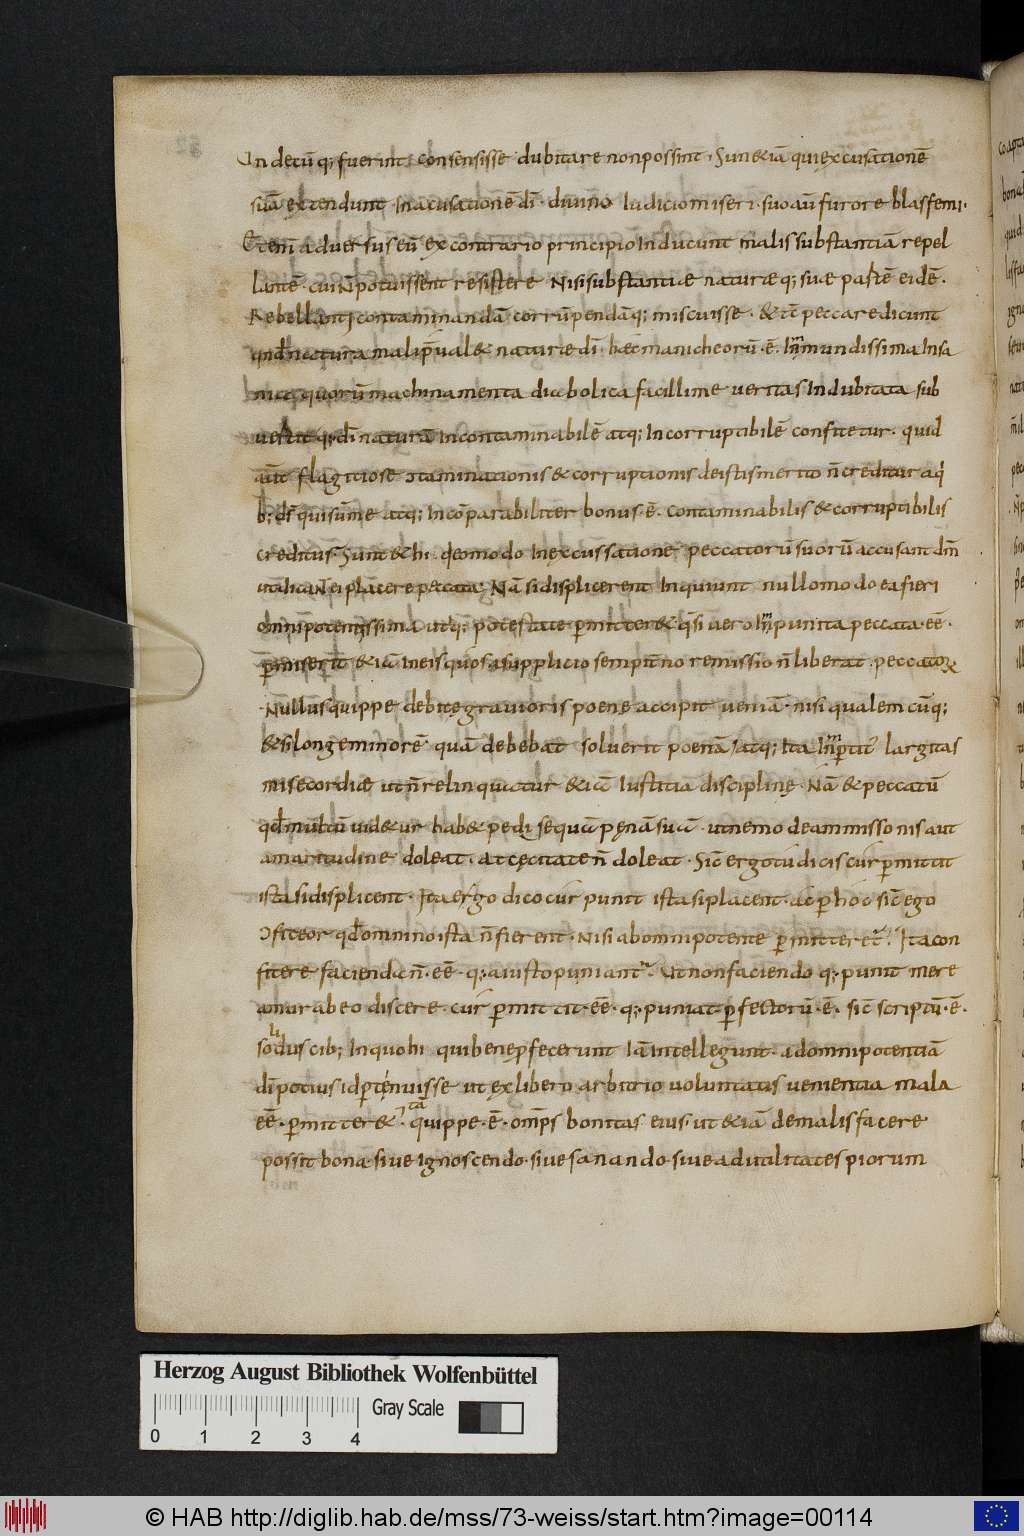 Undecūq; fuerint consensisse dubitare non possint. Sunt & iā qui excusationē
suā extendunt. In acusationē dī. diuino Iudicio miseri. suo aūt furore blasfemi.
Etenī aduersus eū ex contrario principio Inducunt malis substantiā repel
lantē. cui n̄ potuissent resistere Nisi substantiæ naturæq; suæ partē eidē.
Rebellanti contaminandā corrūpendāq; miscuisse. & tc̄ peccare dicunt
qn̄d natura mali p̄ual& naturæ dī. hæc manicheorū. ē. Inmundissima Insa
nia quorū machinamenta diabolica facillime ueritas Indubitata sub
uertit quę dī naturā Incontaminabilē atq; Incorruptibilē confitetur. quid
aūt flagitiose ɔtaminationis & corruptionis de istis merito n̄ creditur a q̇
b; dś qui sūme atq; Incōparabiliter bonus. ē. contaminabilis & corruptibilis
creditus Sunt & hi. qeomodo In excussatione peccatorū suorū accusant dm̄
ut dicant ei placere peccata; Nā si displicerent Inquiunt nullo modo ea fieri
omnipotentissima utq; potestate permitter& q̇si uero Inpunita peccata. eē.
p̄miserit & iā In eis quos a supplicio sempit̄no remission̄ liberat. peccatoꝝ
Nullus quippe debitę grauioris poenę accipit ueniā. nisi qualemcūq;
& si longe minorē quā debebat soluerit poenā; atq; Ita Inp̄titr̄ largitas
misecordiæ ut n̄ relinquatur & iā Iustitia disciplinę. Nā & peccatū
qd̄ inultū uid&ur hab& pedisequā pęnā suā. ut nemo de ammisso nisi aut
amaritudine doleat. at cęcitate n̄ doleat. Sic̄ ergo tu dicis cur p̄mittit
ista si displicent. Ita ergo dico cur punit ista si placent. ac p̄ hoc sic̄ ego
ɔfiteor qd̄ omnino ista n̄ fierent. Nisi ab omnipotente p̄mitteret̄. Ita con
fitere facienda n̄. eē. q; a iusto puniant̄. Ut non faciendo q; punit mere
amur ab eo discere. cur p̄mittit. eē. q; puniat p̄fectorū. ē. sic̄ scriptū. ē.
solidus cib; In quo hi qui bene p̄fecerunt Iā Intellegunt. ad omnipotentiā
dī potius id p̄tenuisse ut ex libero arbitrio uoluntatis uenientia mala
eē. p̄mitter&. tāta quippe. ē. omp̄s bonitas eius. ut & iā de malis facere
possit bona. siue Ignoscendo. siue sanando. siue ad utilitates piorum
Herzog August Bibliothek Wolfenbüttel
Gray Scale
0 1 2 3 4
© HAB http://diglib.hab.de/mss/73-weiss/start.htm?image=00114